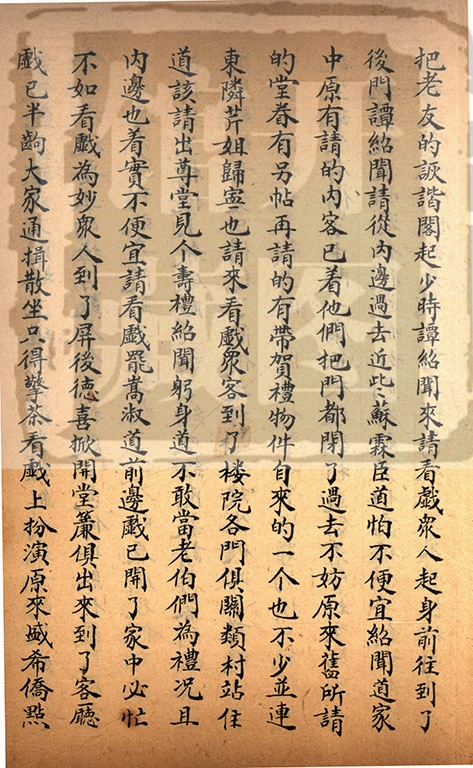 把老友的詼諧閣起少時譚紹聞來請看戲衆人起身前往到了
後門譚紹聞請從內邊過去近些蘇霖臣道怕不便宜紹聞道家
中原有請的內客已着他們把門都閉了過去不妨原來舊所請
的堂眷有另帖再請的有帶賀禮物件自來的一个也不少並連
東隣芹姐歸寧也請來看戲衆客到了楼院各門俱關類村站住
道該請出尊堂見个壽禮紹聞躬身道不敢當老伯們為禮况且
內邊也着實不便宜請看戲罷嵩淑道前邊戲已開了家中必忙
不如看戲為妙衆人到了屏後德喜掀開堂簾俱出來到了客廳
戲已半齣大家通揖散坐只得擎茶看戲上扮演原來盛希僑點